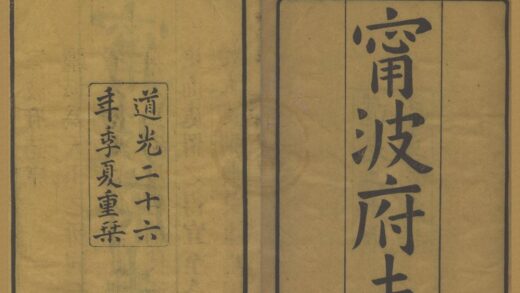 甯波府
道光二十六
年季夏重栞